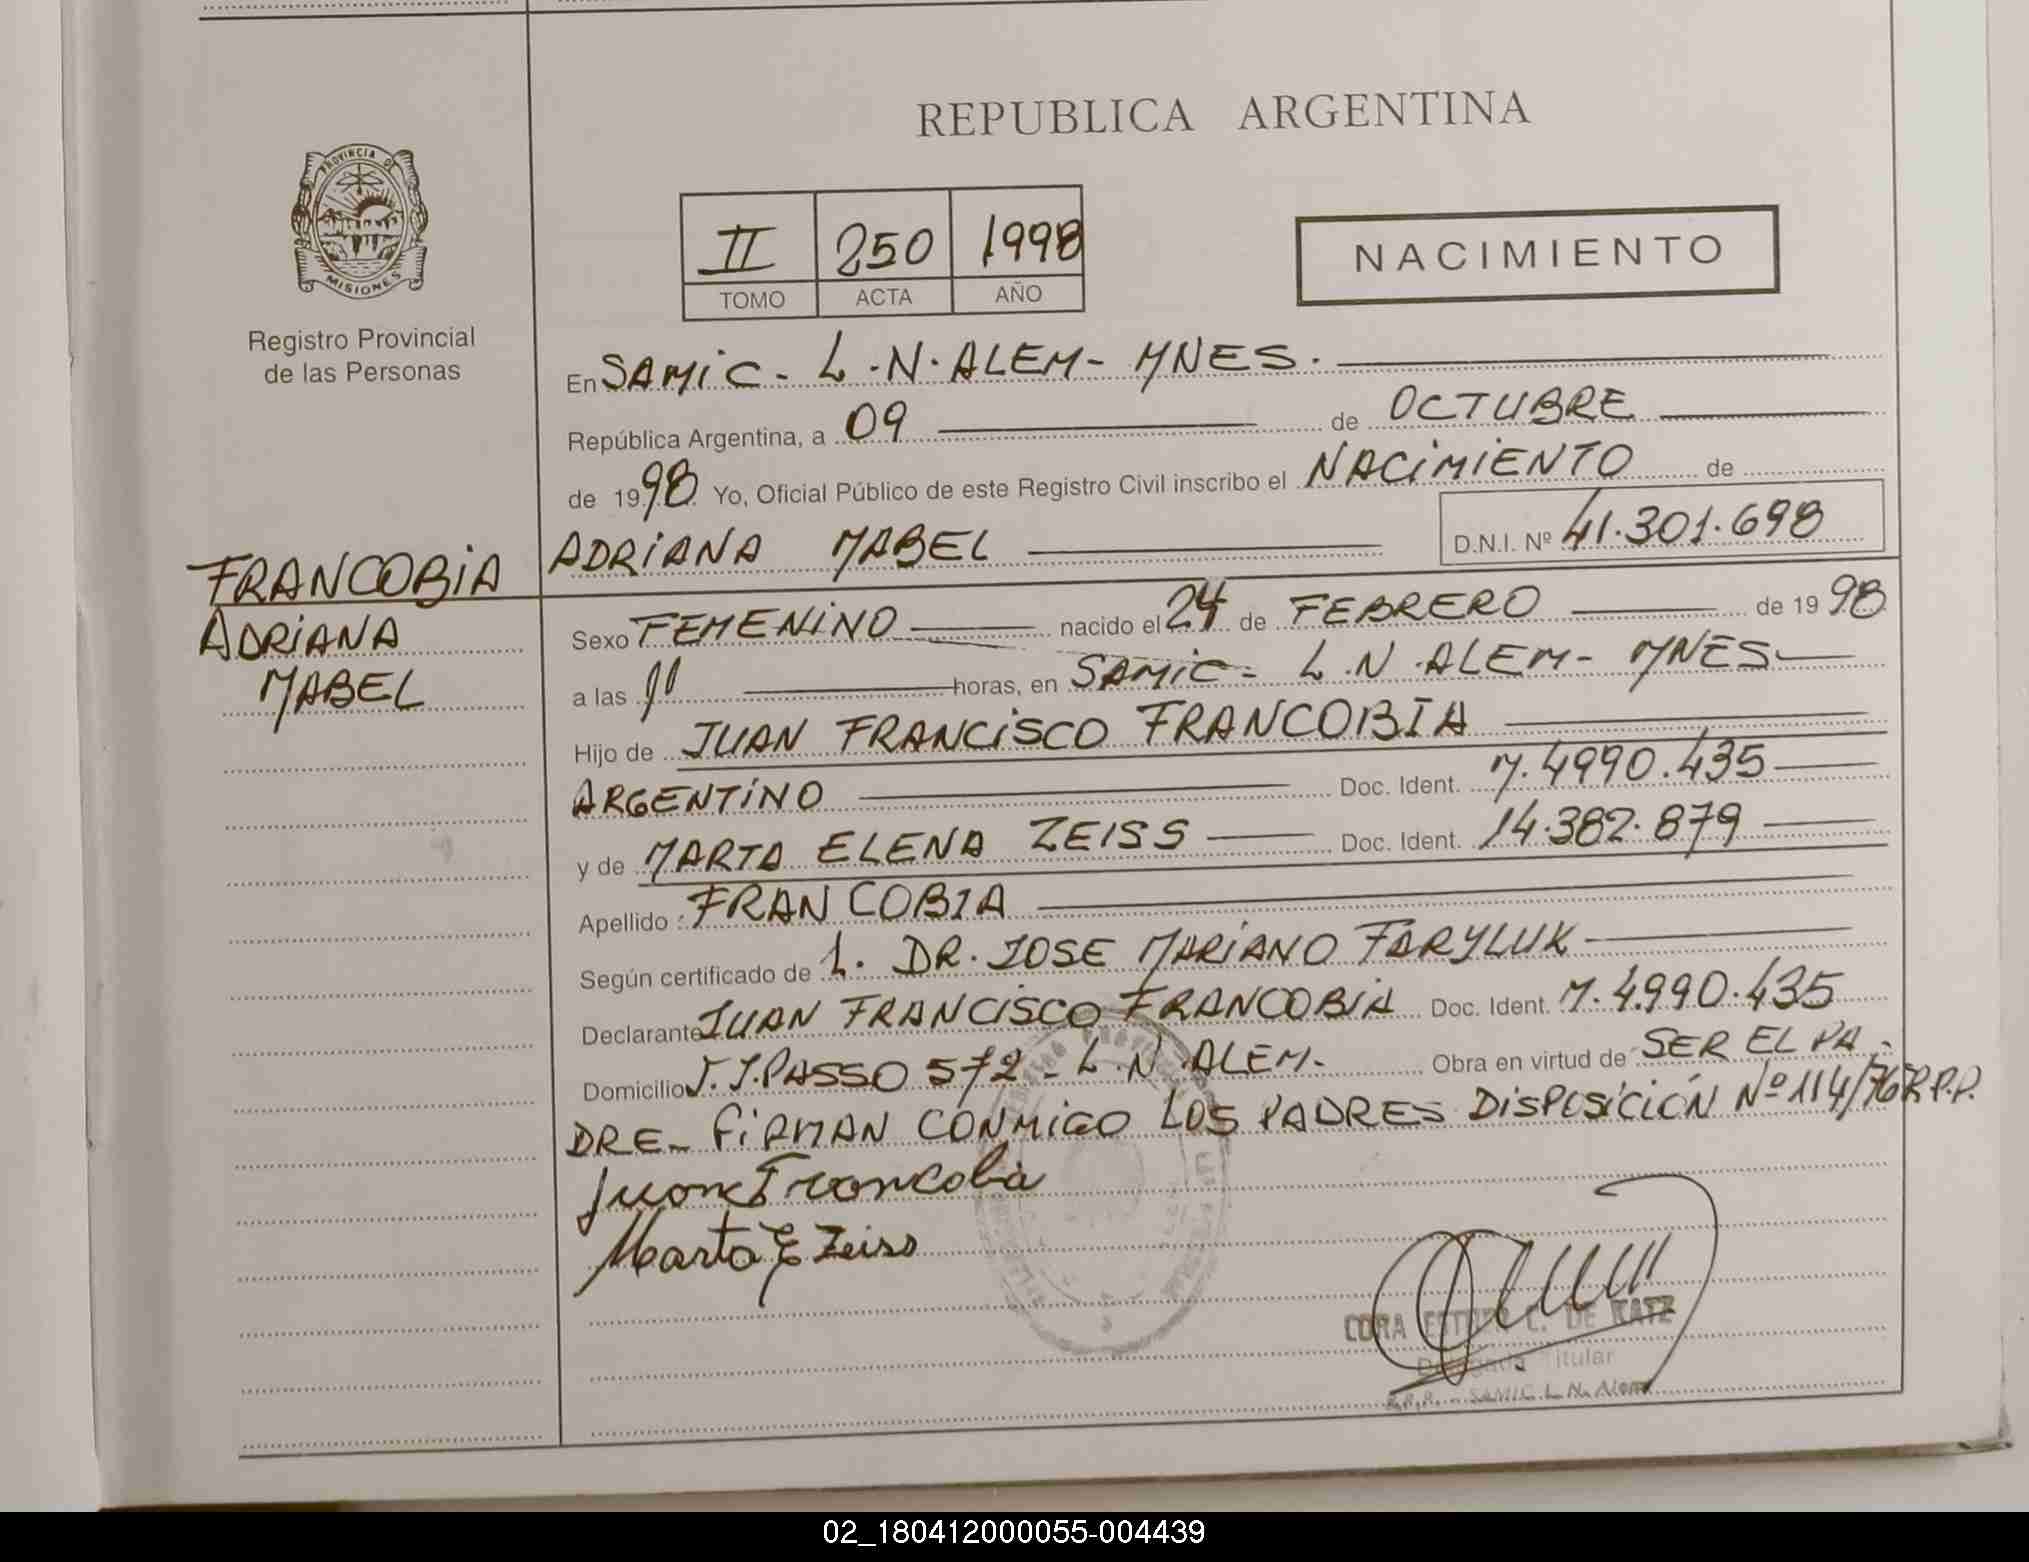 REPUBLICA ARGENTINA
PROVINCIA DE MISIONES
Registro Provincial
de las Personas
II 250 1998
TOMO ACTA AÑO
NACIMIENTO
En SAMIC - L.N. ALEM - MNES.
República Argentina, a 09 de OCTUBRE
de 1998 Yo, Oficial Público de este Registro Civil inscribo el NACIMIENTO de
ADRIANA MABEL D.N.I. Nº 41.301.698
FRANCOBIA
ADRIANA
MABEL
Sexo FEMENINO nacido el 24 de FEBRERO de 1998
a las 11 horas, en SAMIC - L.N. ALEM - MNES
Hijo de JUAN FRANCISCO FRANCOBIA
ARGENTINO Doc. Ident. M. 4990.435
y de MARTA ELENA ZEISS Doc. Ident. 14.382.879
Apellido: FRANCOBIA
Según certificado de 1. DR. JOSE MARIANO FARYLUK
Declarante JUAN FRANCISCO FRANCOBIA Doc. Ident. M. 4.990.435
Domicilio J.J. PASSO 572 - L.N. ALEM. Obra en virtud de SER EL PA-
DRE - FIRMAN CONMIGO LOS PADRES DISPOSICIÓN Nº 114/76 R.P.P.
Juan F Francobia
Marta E Zeiss
CORA ESTHER C. DE KATZ
Delegada Titular
R.P.P. - SAMIC L.N. Alem
02_180412000055-004439